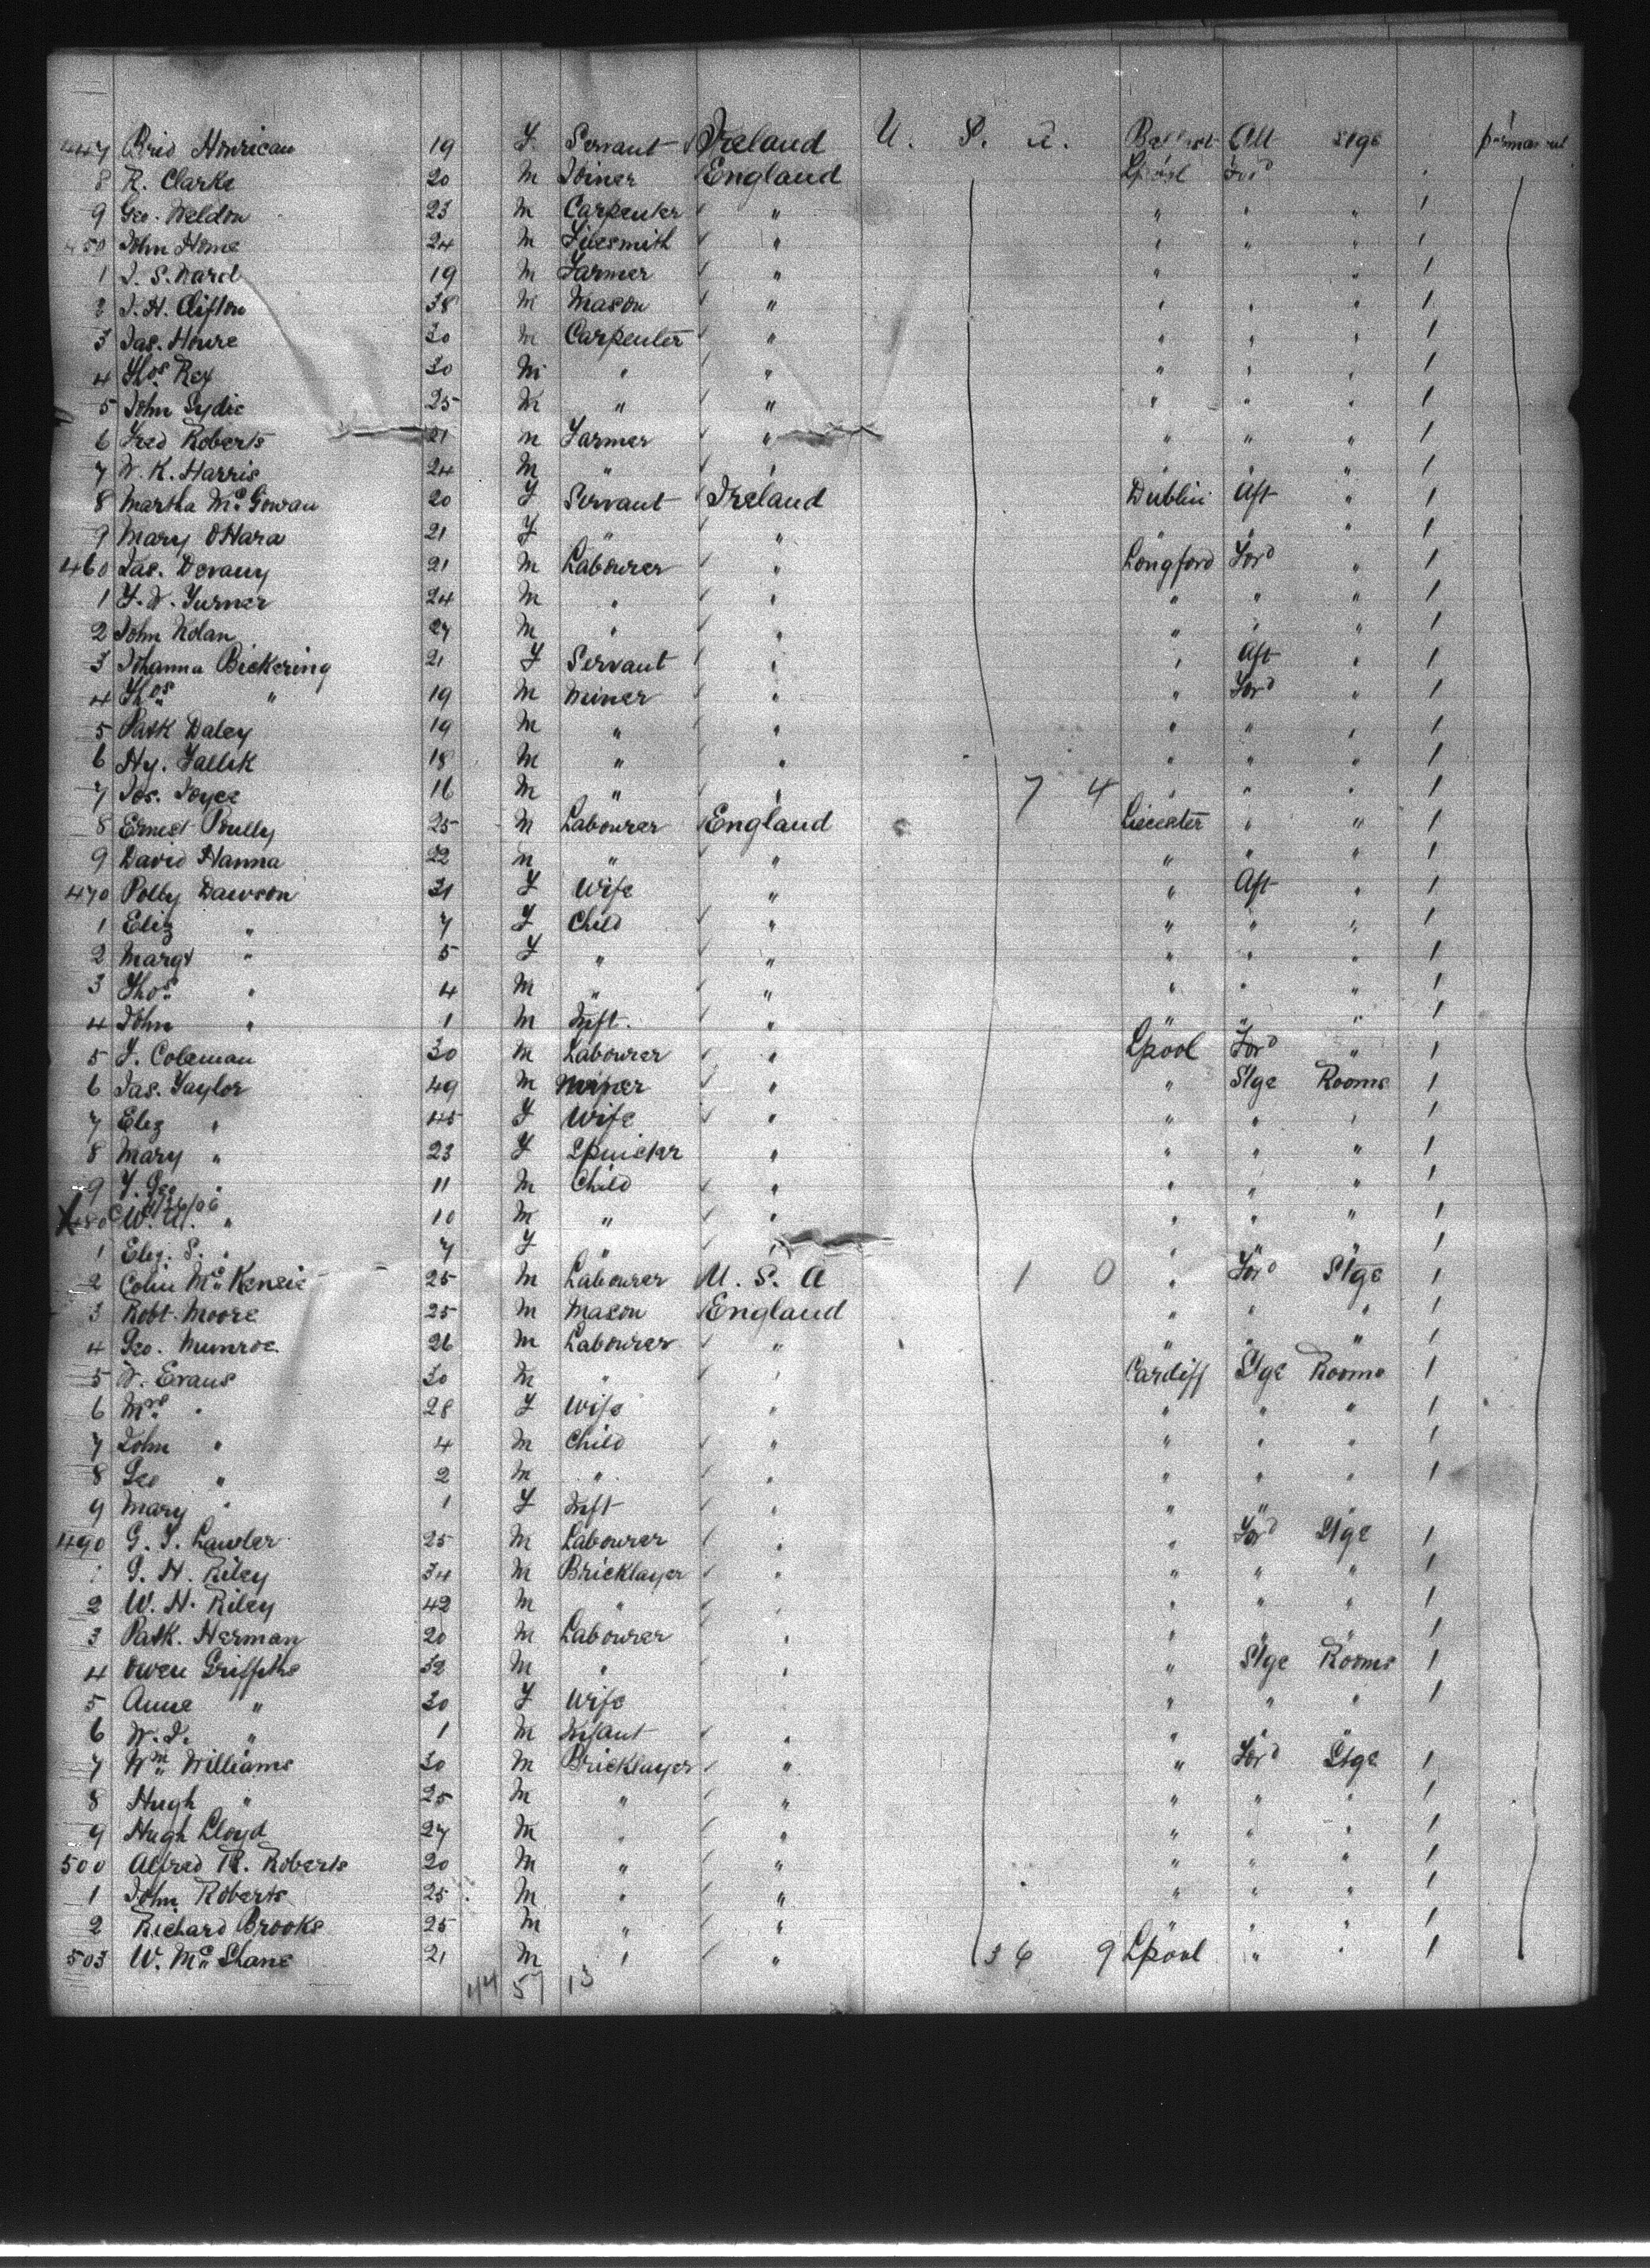 447 Brid Hourican 19 F Servant Ireland U. S. A. Belfast Aft Stge permanent
8 R. Clarke 20 M Joiner England Lpool For'd
9 Geo. Weldon 23 M Carpenter " " " " 1
450 John Home 24 M Filesmith " " " " 1
1 J. S. Ward 19 M Farmer " " " 1
2 J. H. Clifton 38 M Mason " " " " 1
3 Jas. Howre 30 M Carpenter " " " " 1
4 Thos Rex 30 M " " " " " 1
5 John Lydie 25 M " " " " " 1
6 Fred Roberts 21 M Farmer " " " " 1
7 W. K. Harris 24 M " " " " " 1
8 Martha McGowan 20 F Servant Ireland Dublin Aft " 1
9 Mary OHara 21 F " " " " " 1
460 Jas. Devany 21 M Labourer " Longford For'd " 1
1 F. W. Turner 24 M " " " " " 1
2 John Nolan 27 M " " " " " 1
3 Johanna Bickering 21 F Servant " " Aft " 1
4 Thos " 19 M Miner " " For'd " 1
5 Patk Daley 19 M " " " " " 1
6 Hy. Fallik 18 M " " " " " 1
7 Jos. Joyce 16 M " " 7 4 " " " 1
8 Ernest Bully 25 M Labourer England Liecester " " 1
9 David Hanna 22 M " " " " " 1
470 Polly Dawson 31 F Wife " " Aft " 1
1 Eliz " 7 F Child " " " " 1
2 Margt " 5 F " " " " " 1
3 Thos " 4 M " " " " " 1
4 John " 1 M Inft. " " " " 1
5 J. Coleman 30 M Labourer " Lpool For'd " 1
6 Jas. Taylor 49 M Miner " " Stge Rooms 1
7 Eliz " 45 F Wife " " " " 1
8 Mary " 23 F Spinster " " " " 1
9 T. Geo " 11 M Child " " " " 1
X 480 W. A. " 10 M " " " " " 1
1 Eliz. S. " 7 F " " " " " 1
2 Colin McKenzie 25 M Labourer U. S. A 1 0 " For'd Stge 1
3 Robt. Moore 25 M Mason England " " " 1
4 Geo. Munroe 26 M Labourer " " " " 1
5 W. Evans 30 M " " Cardiff Stge Rooms 1
6 Mrs " 28 F Wife " " " " 1
7 John " 4 M Child " " " " 1
8 Geo " 2 M " " " " " 1
9 Mary " 1 F Inft " " " "
490 G. T. Lawler 25 M Labourer " " For'd Stge 1
1 G. H. Riley 34 M Bricklayer " " " " 1
2 W. H. Riley 42 M " " " " " 1
3 Patk. Herman 20 M Labourer " " " " 1
4 Owen Griffiths 32 M " " " Stge Rooms 1
5 Anne " 30 F Wife " " " 1
6 W. J. " 1 M Infant " "
7 Wm Williams 30 M Bricklayer " " For'd Stge 1
8 Hugh " 25 M " " " " " 1
9 Hugh Lloyd 27 M " " " " " 1
500 Alfred R. Roberts 20 M " " " " " 1
1 John Roberts 25 M " " " " " 1
2 Richard Brooks 25 M " " " " " 1
503 W. McShane 21 M " " 36 9 Lpool " " 1
44 57 13